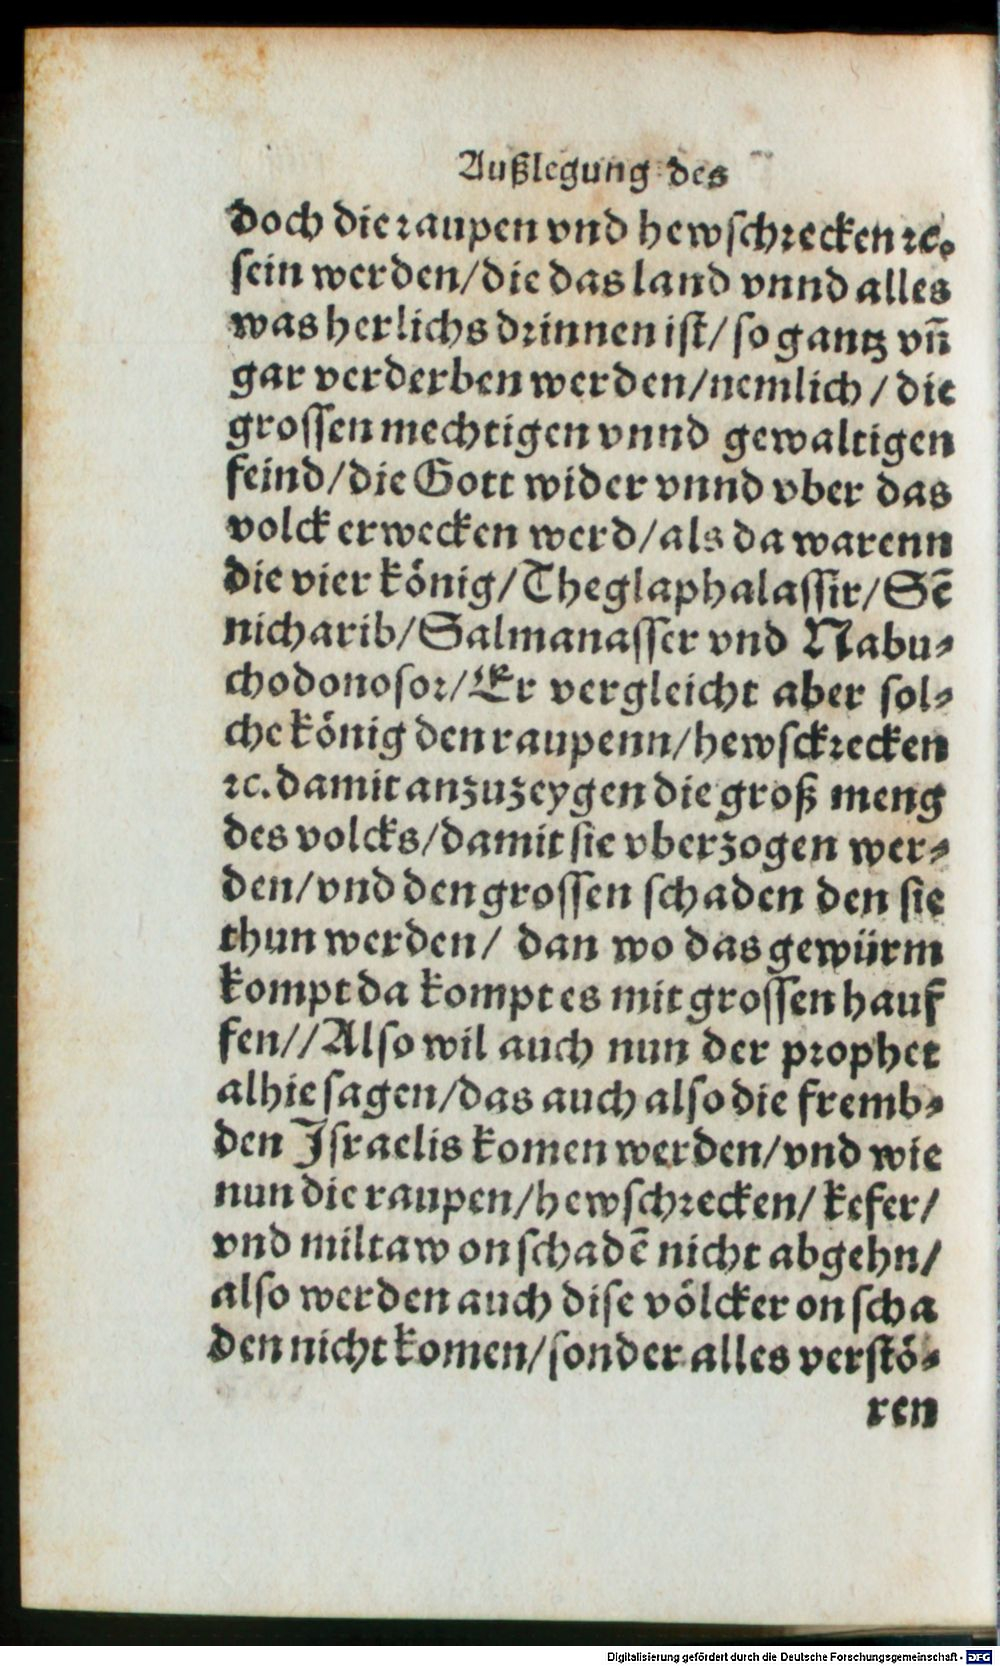 Außlegung des
doch die raupen vnd hewschrecken ꝛc.
sein werden/die das land vnnd alles
was herlichs drinnen ist/so gantz vn̄
gar verderben werden/nemlich/die
grossen mechtigen vnnd gewaltigen
feind/die Gott wider vnnd vber das
volck erwecken werd/als da warenn
die vier könig/Theglaphalassir/Sē
nicharib/Salmanasser vnd Nabu⸗
chodonosor/Er vergleicht aber sol⸗
che könig den raupenn/hewsckrecken
ꝛc. damit anzuzeygen die groß meng
des volcks/damit sie vberzogen wer⸗
den/vnd den grossen schaden den sie
thun werden/ dan wo das gewürm
kompt da kompt es mit grossen hauf
fen//Also wil auch nun der prophet
alhie sagen/das auch also die fremb⸗
den Israelis komen werden/vnd wie
nun die raupen/hewschrecken/kefer/
vnd miltaw on schadē nicht abgehn/
also werden auch dise völcker on scha
den nicht komen/sonder alles verstö⸗
ren
Digitalisierung gefördert durch die Deutsche Forschungsgemeinschaft - DFG